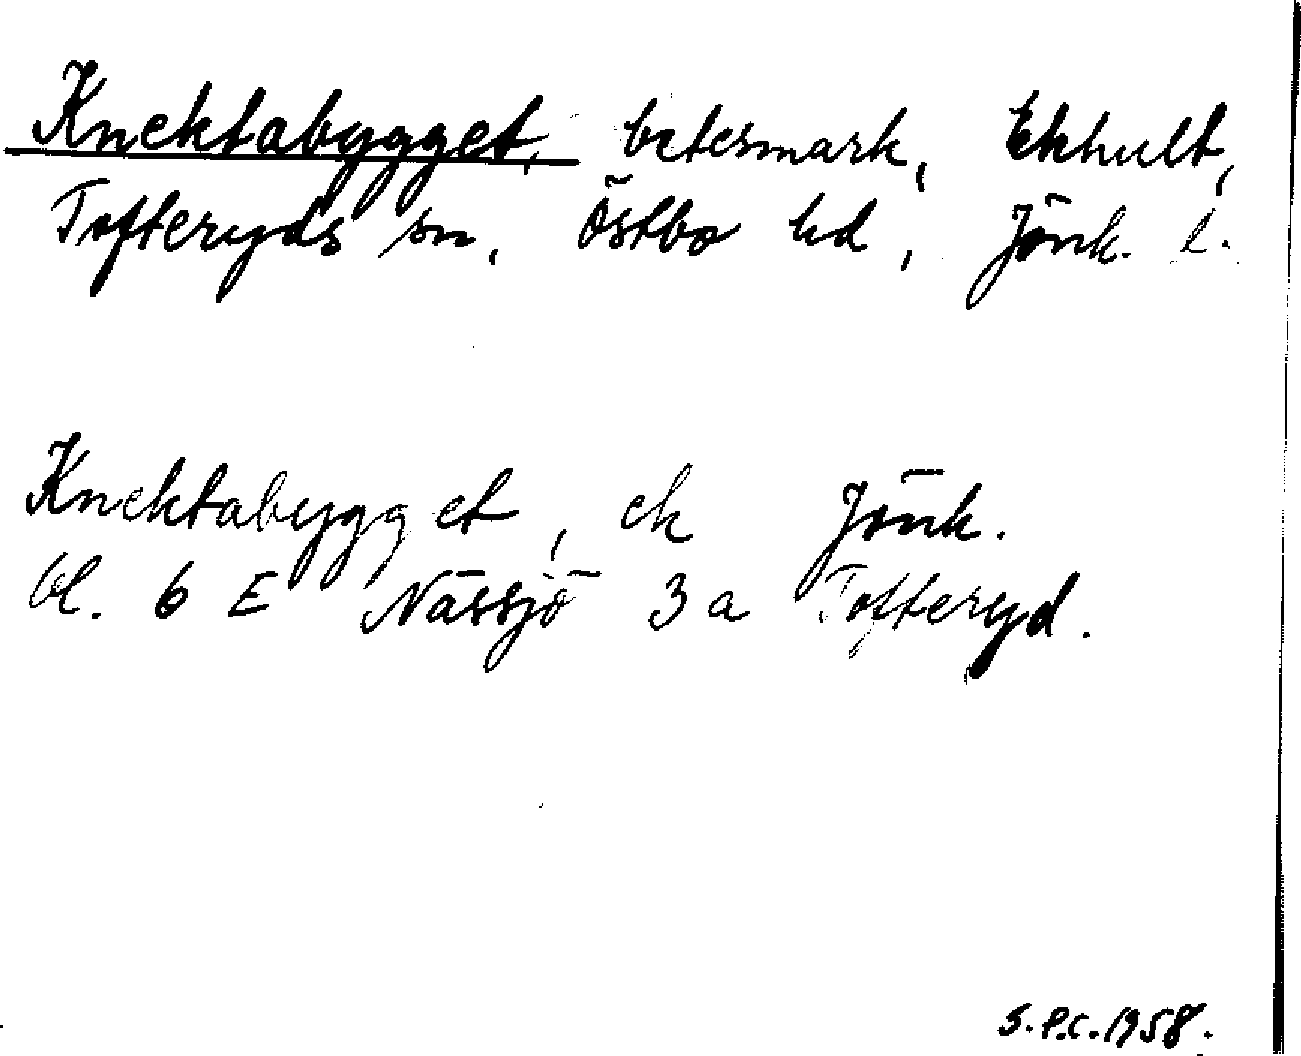 Knektabygget, betesmark, Ekhult,
Tofteryds sn, Östbo hd, Jönk. l.
Knektabygget, ek Jönk.
bl. 6 E Nässjö 3 a Tofteryd.
S.P.C. 1958.